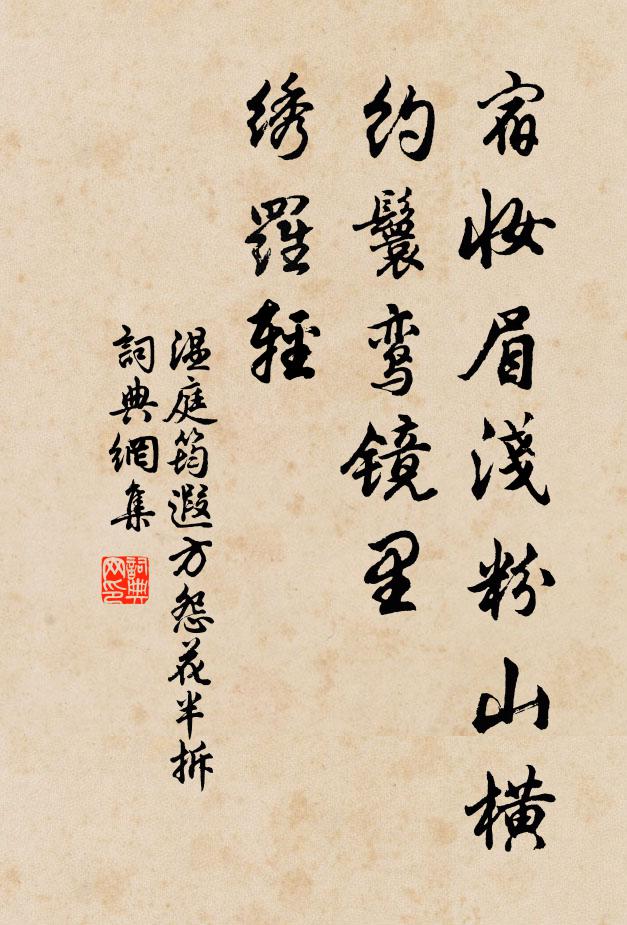 宿妆眉淺粉山橫
约鬟鸾镜里
绣羅輕
温庭筠遐方怨花半拆
詞典網集
詞典网印